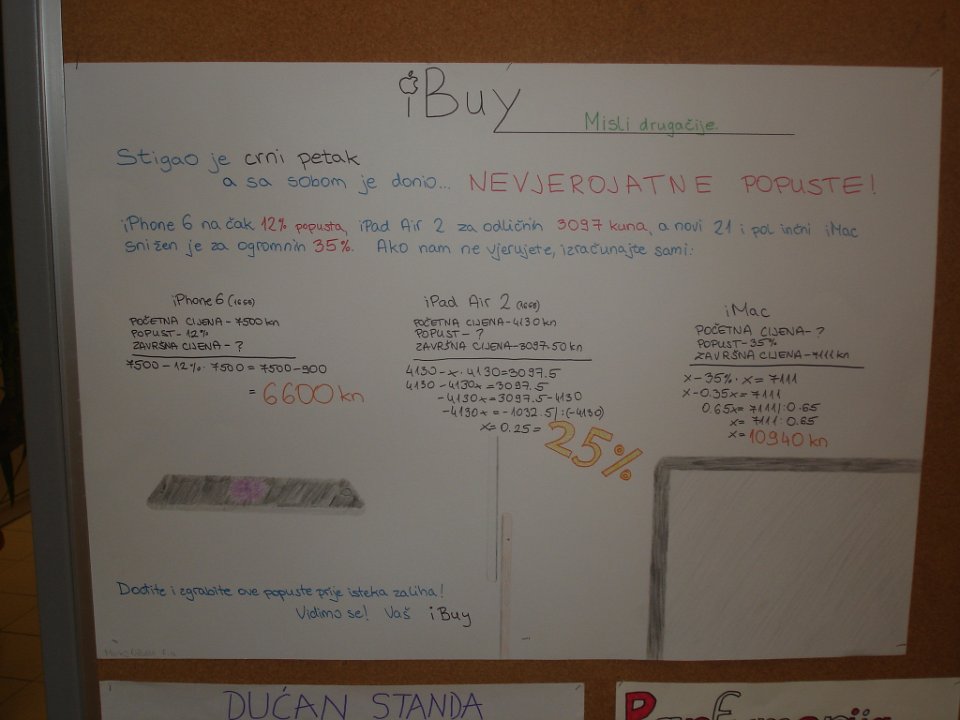 iBuy
Misli drugačije.
Stigao je crni petak
a sa sobom je donio... NEVJEROJATNE POPUSTE!
iPhone 6 na čak 12% popusta, iPad Air 2 za odličnih 3097 kuna, a novi 21 i pol inčni iMac
snižen je za ogromnih 35%. Ako nam ne vjerujete, izračunajte sami:
iPhone 6 (16GB)
POČETNA CIJENA - 7500 kn
POPUST - 12%
ZAVRŠNA CIJENA - ?
7500 - 12% · 7500 = 7500 - 900
= 6600 kn
iPad Air 2 (16GB)
POČETNA CIJENA - 4130 kn
POPUST - ?
ZAVRŠNA CIJENA - 3097.50 kn
4130 - x · 4130 = 3097.5
4130 - 4130x = 3097.5
-4130x = 3097.5 - 4130
-4130x = -1032.5 /:(-4130)
x = 0.25 = 25%
iMac
POČETNA CIJENA - ?
POPUST - 35%
ZAVRŠNA CIJENA - 7111 kn
x - 35% · x = 7111
x - 0.35x = 7111
0.65x = 7111 /:0.65
x = 7111 : 0.65
x = 10940 kn
Dođite i zgrabite ove popuste prije isteka zaliha!
Vidimo se! Vaš iBuy
DUĆAN STANDA